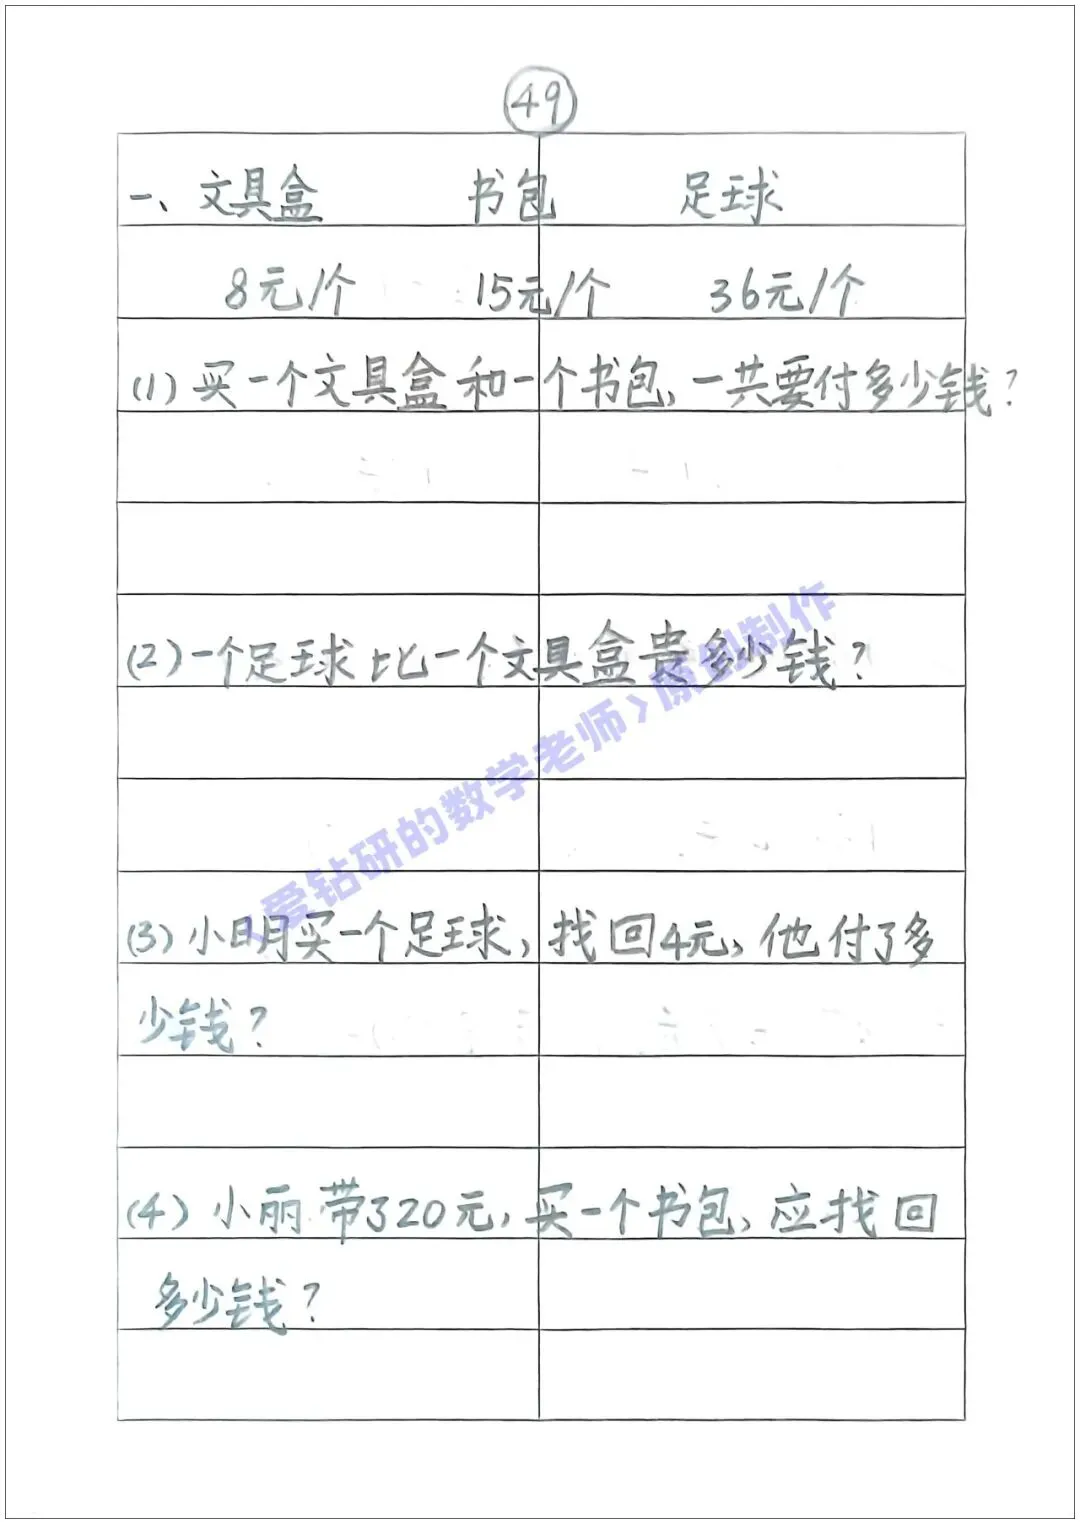 49
一、文具盒 书包 足球
8元/个 15元/个 36元/个
(1) 买一个文具盒和一个书包, 一共要付多少钱?
(2) 一个足球比一个文具盒贵多少钱?
《爱钻研的数学老师》原创制作
(3) 小明买一个足球, 找回4元, 他付了多
少钱?
(4) 小丽带了20元, 买一个书包, 应找回
多少钱?